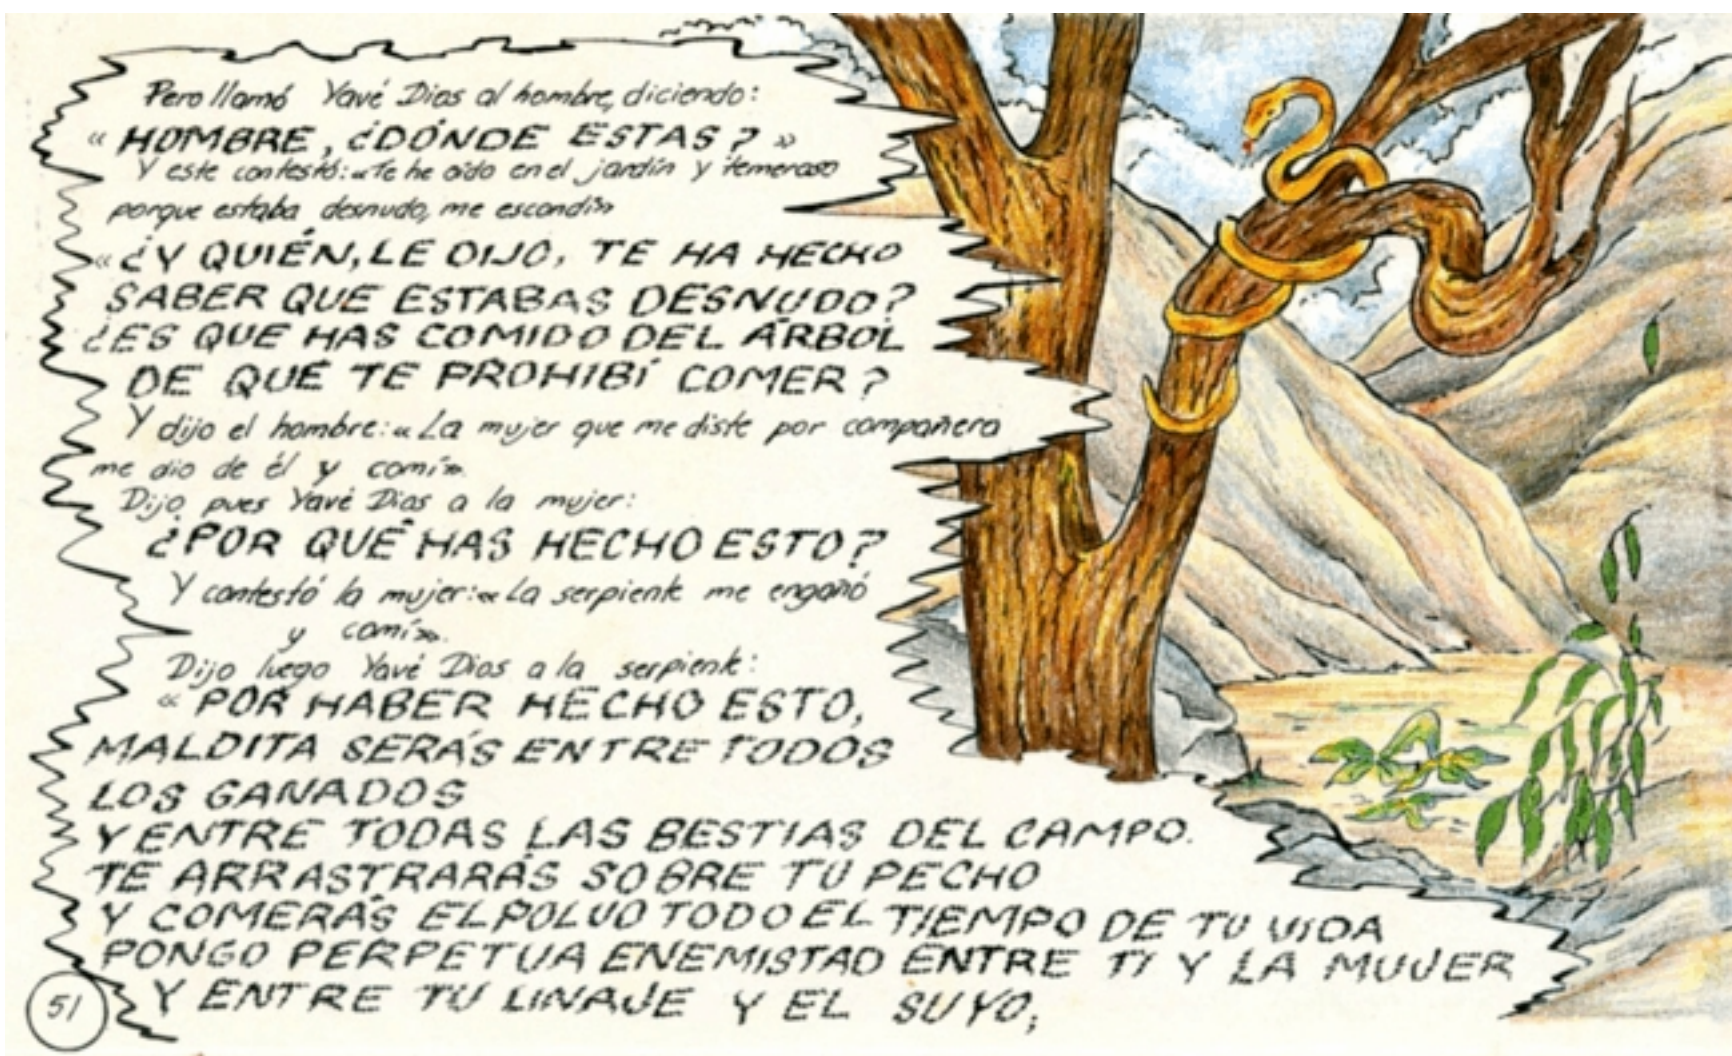 Pero llamó Yavé Dios al hombre, diciendo:
« HOMBRE, ¿DÓNDE ESTAS? »
Y este contestó: «Te he oído en el jardín y temeroso
porque estaba desnudo, me escondí»
«¿Y QUIÉN, LE DIJO, TE HA HECHO
SABER QUE ESTABAS DESNUDO?
¿ES QUE HAS COMIDO DEL ÁRBOL
DE QUE TE PROHIBÍ COMER?
Y dijo el hombre: «La mujer que me diste por compañera
me dio de él y comí».
Dijo pues Yavé Dios a la mujer:
¿POR QUÉ HAS HECHO ESTO?
Y contestó la mujer: «La serpiente me engañó
y comí».
Dijo luego Yavé Dios a la serpiente:
«POR HABER HECHO ESTO,
MALDITA SERÁS ENTRE TODOS
LOS GANADOS
Y ENTRE TODAS LAS BESTIAS DEL CAMPO.
TE ARRASTRARÁS SOBRE TU PECHO
Y COMERÁS EL POLVO TODO EL TIEMPO DE TU VIDA
PONGO PERPETUA ENEMISTAD ENTRE TI Y LA MUJER
Y ENTRE TU LINAJE Y EL SUYO;
51